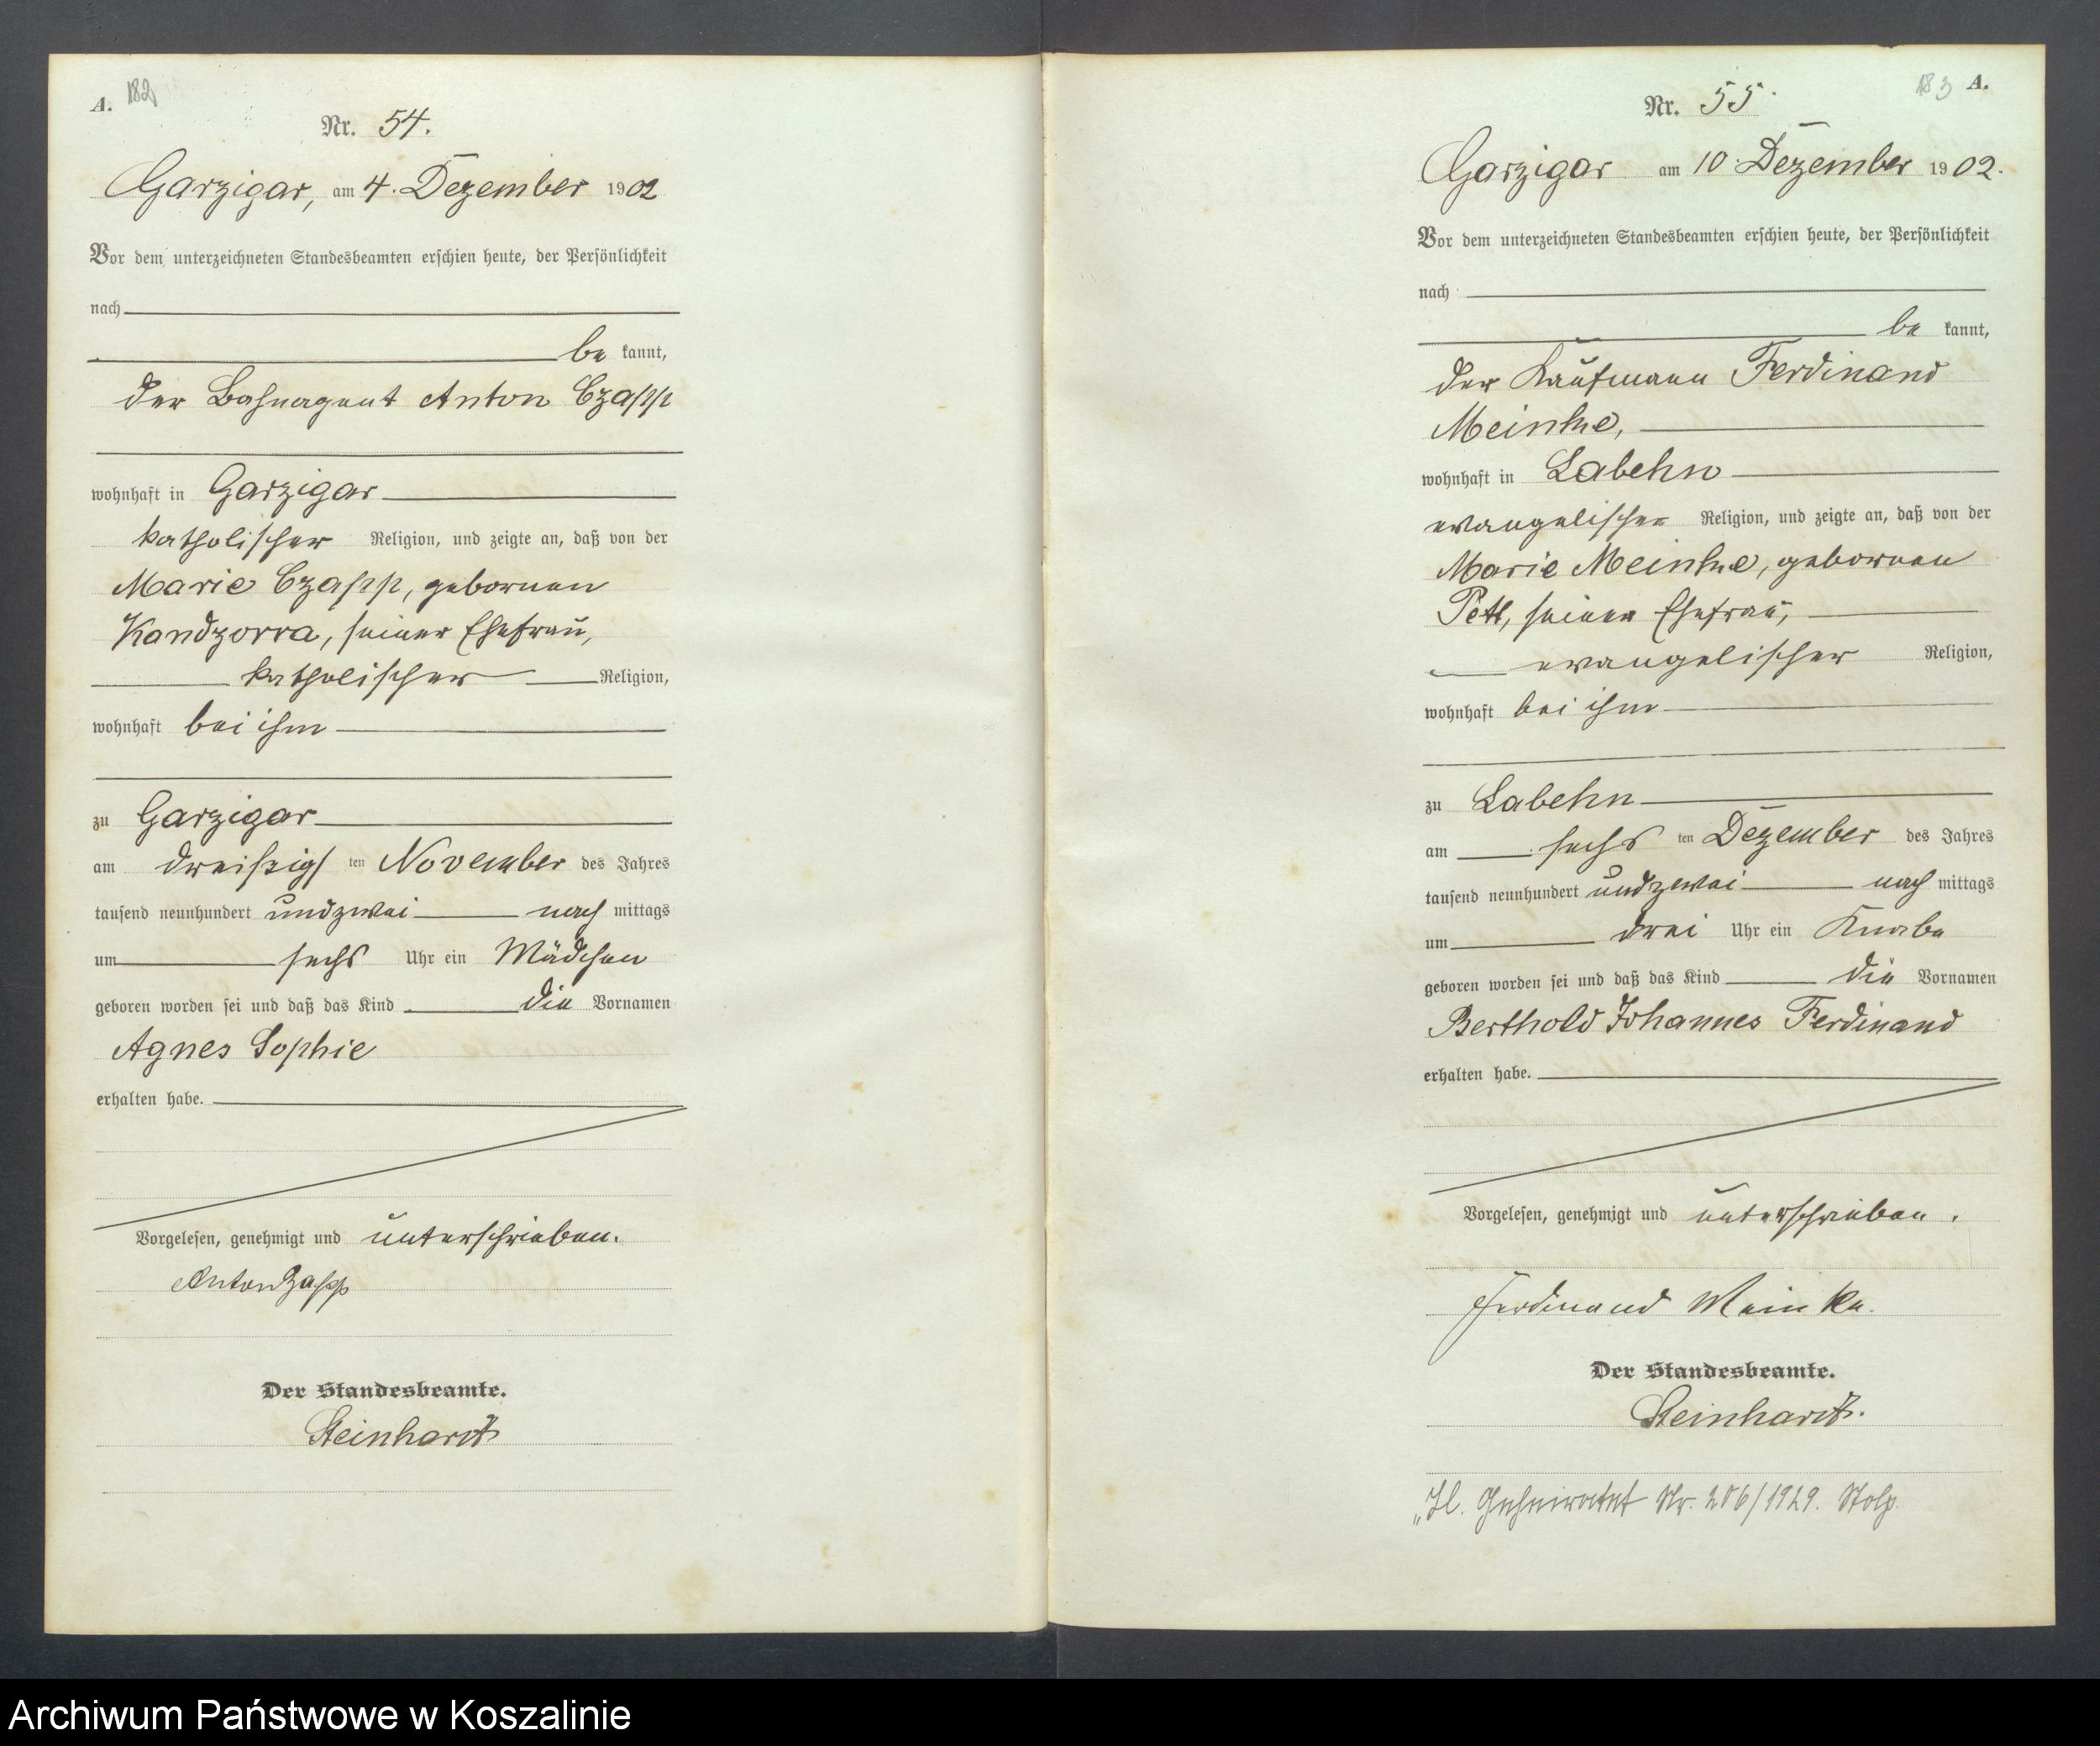 A. 182
Nr. 54.
Garzigar, am 4. Dezember 1902
Vor dem unterzeichneten Standesbeamten erschien heute, der Persönlichkeit
nach
be kannt,
der Bahnagent Anton Czapp
wohnhaft in Garzigar
katholischer Religion, und zeigte an, daß von der
Marie Czapp, gebornen
Kandzorra, seiner Ehefrau,
katholischer Religion,
wohnhaft bei ihm
zu Garzigar
am dreißigsten November des Jahres
tausend neunhundert undzwei nach mittags
um sechs Uhr ein Mädchen
geboren worden sei und daß das Kind die Vornamen
Agnes Sophie
erhalten habe.
Vorgelesen, genehmigt und unterschrieben.
Anton Czapp
Der Standesbeamte.
Steinhardt
183 A.
Nr. 55.
Garzigar am 10 Dezember 1902.
Vor dem unterzeichneten Standesbeamten erschien heute, der Persönlichkeit
nach
be kannt,
der Kaufmann Ferdinand
Meinke,
wohnhaft in Labehn
evangelischer Religion, und zeigte an, daß von der
Marie Meinke, gebornen
seiner Ehefrau,
evangelischer Religion,
wohnhaft bei ihm
zu Labehn
am sechs ten Dezember des Jahres
tausend neunhundert undzwei nach mittags
um drei Uhr ein Knabe
geboren worden sei und daß das Kind die Vornamen
Berthold Johannes Ferdinand
erhalten habe.
Vorgelesen, genehmigt und unterschrieben.
Ferdinand Meinke.
Der Standesbeamte.
Steinhardt.
Geheiratet Nr. 206/1929. Stolp.
Archiwum Państwowe w Koszalinie